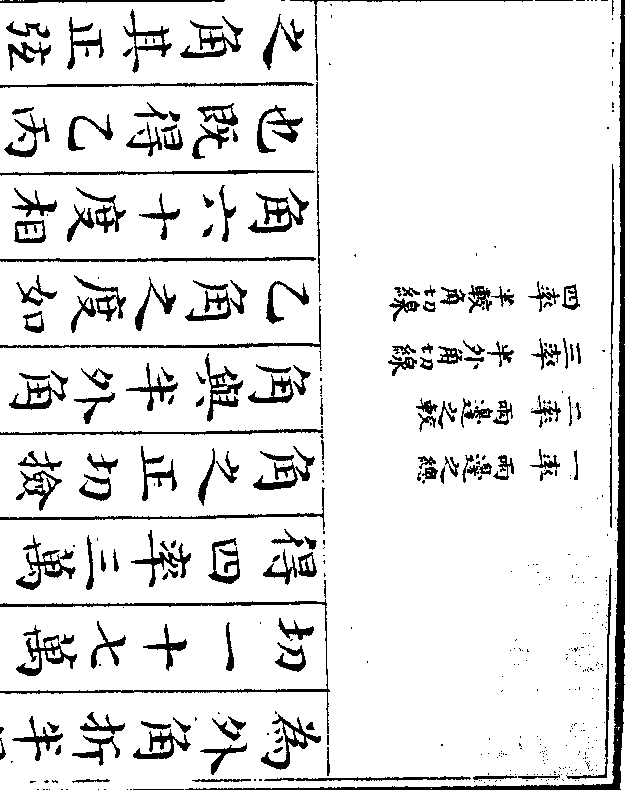 一率 兩邊之總
二率 兩邊之較
三率 半外角切線
四率 半較角切線
為外角折半
切一十七萬
得四率三萬
角之正切檢
角與半外角
乙角之度如
角六十度相
也既得乙丙
之角其正弦